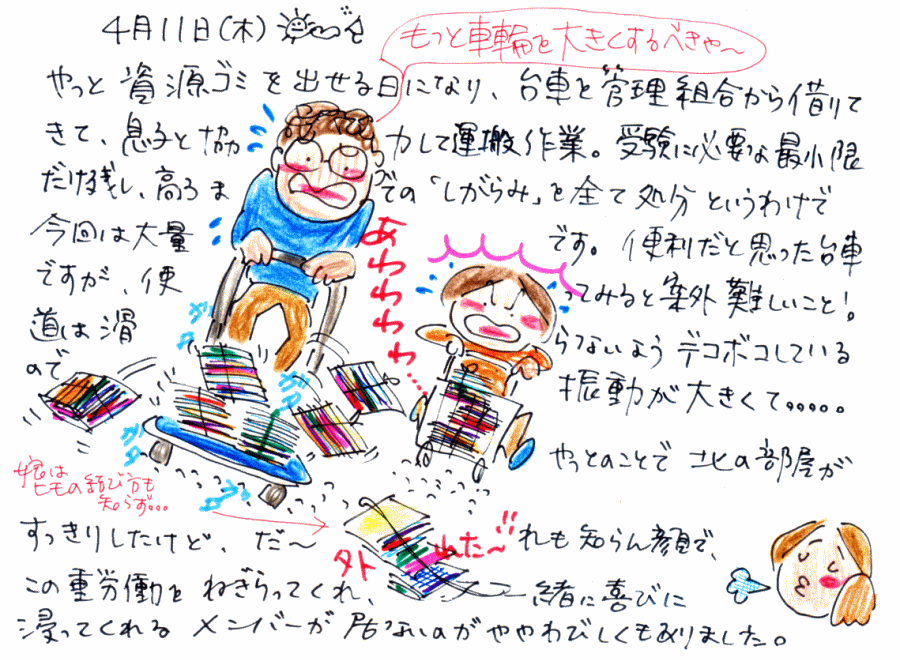 4月11日(木)
もっと車輪を大きくするべきや～
やっと資源ゴミを出せる日になり、台車を管理組合から借りて
きて、息子と協力して運搬作業。受験に必要な最小限
だけ残し、高3までの「しがらみ」を全て処分というわけで
今回は大量です。便利だと思った台車
ですが、使ってみると案外難しいこと！
道は滑らないようデコボコしている
ので振動が大きくて。。。。。
あわわわわ…
ガタ
ガタ
ガタ
娘は
ヒモの結び方も
知らず…
外れた～!!
やっとのことで北の部屋が
すっきりしたけど、だ～れも知らん顔で、
この重労働をねぎらってくれ、一緒に喜びに
浸ってくれるメンバーが居ないのがややわびしくもありました。